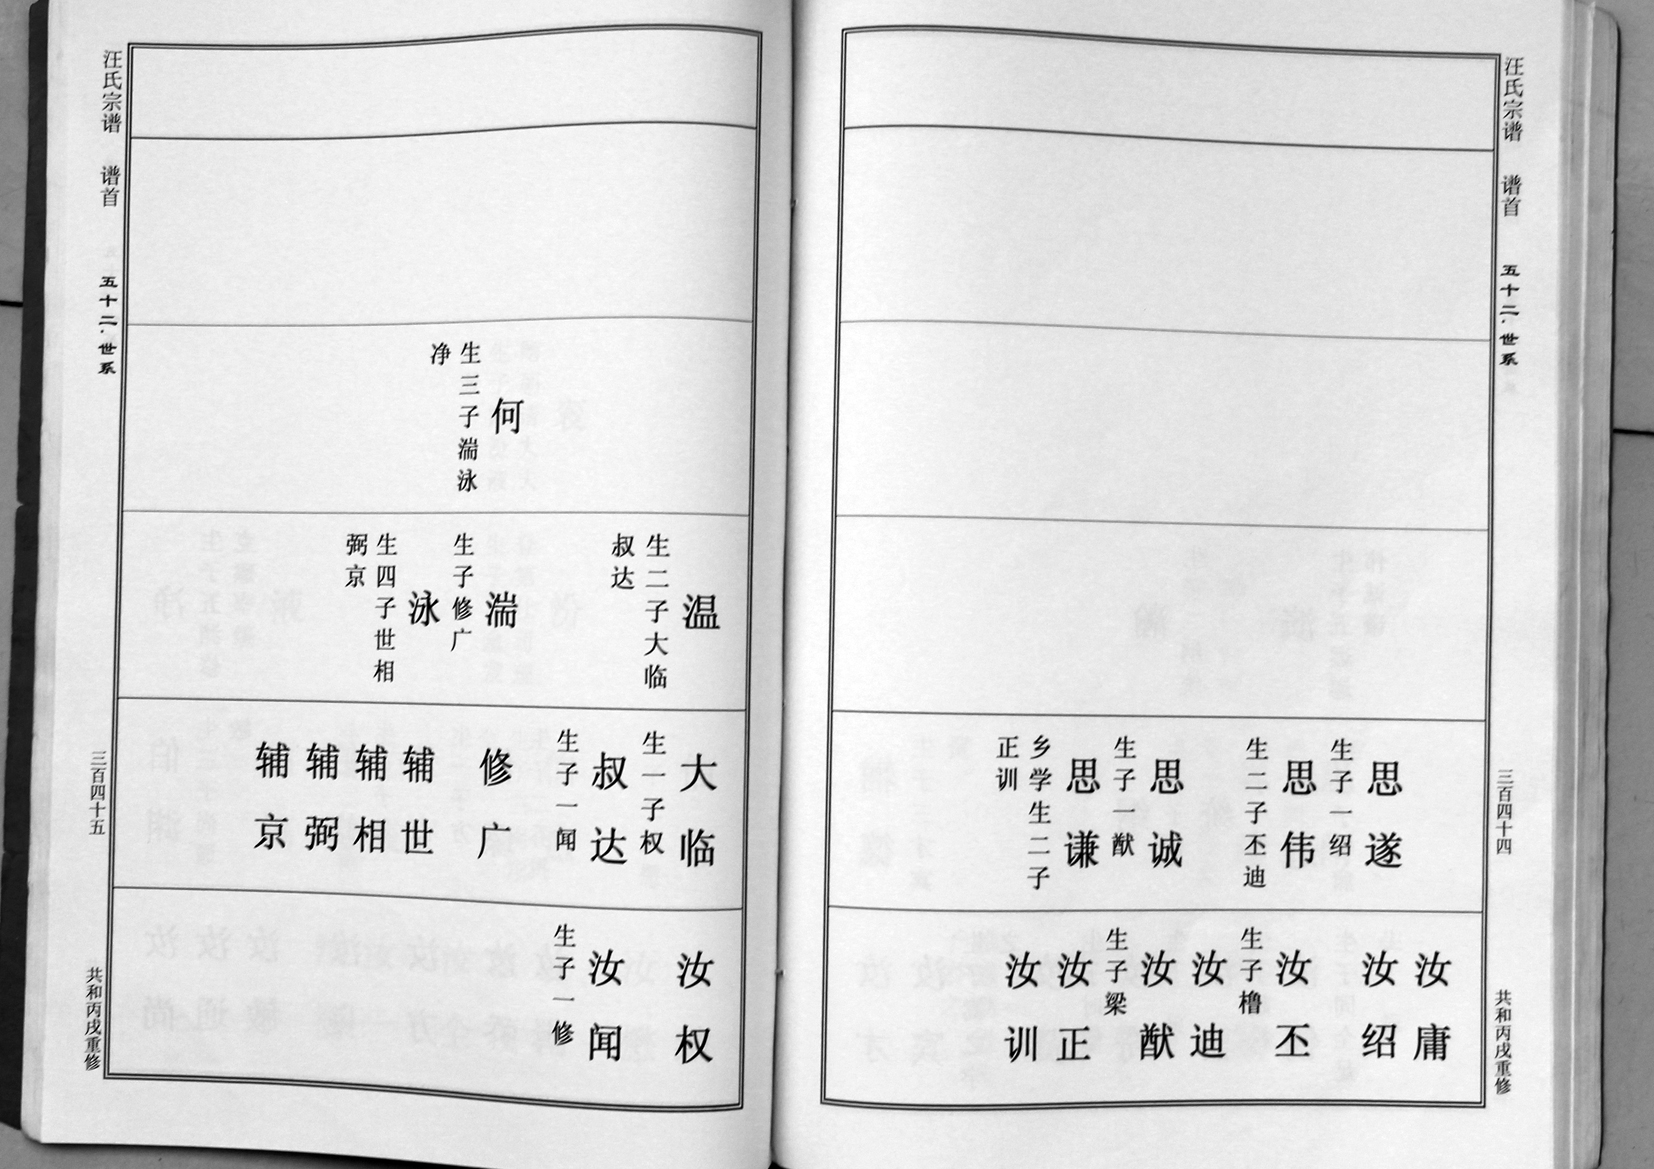 汪氏宗谱 谱首 五十二·世系 三百四十四 共和丙戌重修
思遂
生子一绍
思伟
生二子丕迪
思诚
生子一猷
思谦
乡学生二子
正训
汝庸
汝绍
汝丕
生子橹
汝迪
汝猷
生子梁
汝正
汝训
何
生三子湍泳
净
温
生二子大临
叔达
湍
生子修广
泳
生四子世相
弼京
大临
生一子权
叔达
生子一闻
修广
辅世
辅相
辅弼
辅京
汝权
汝闻
生子一修
汪氏宗谱 谱首 五十二·世系 三百四十五 共和丙戌重修